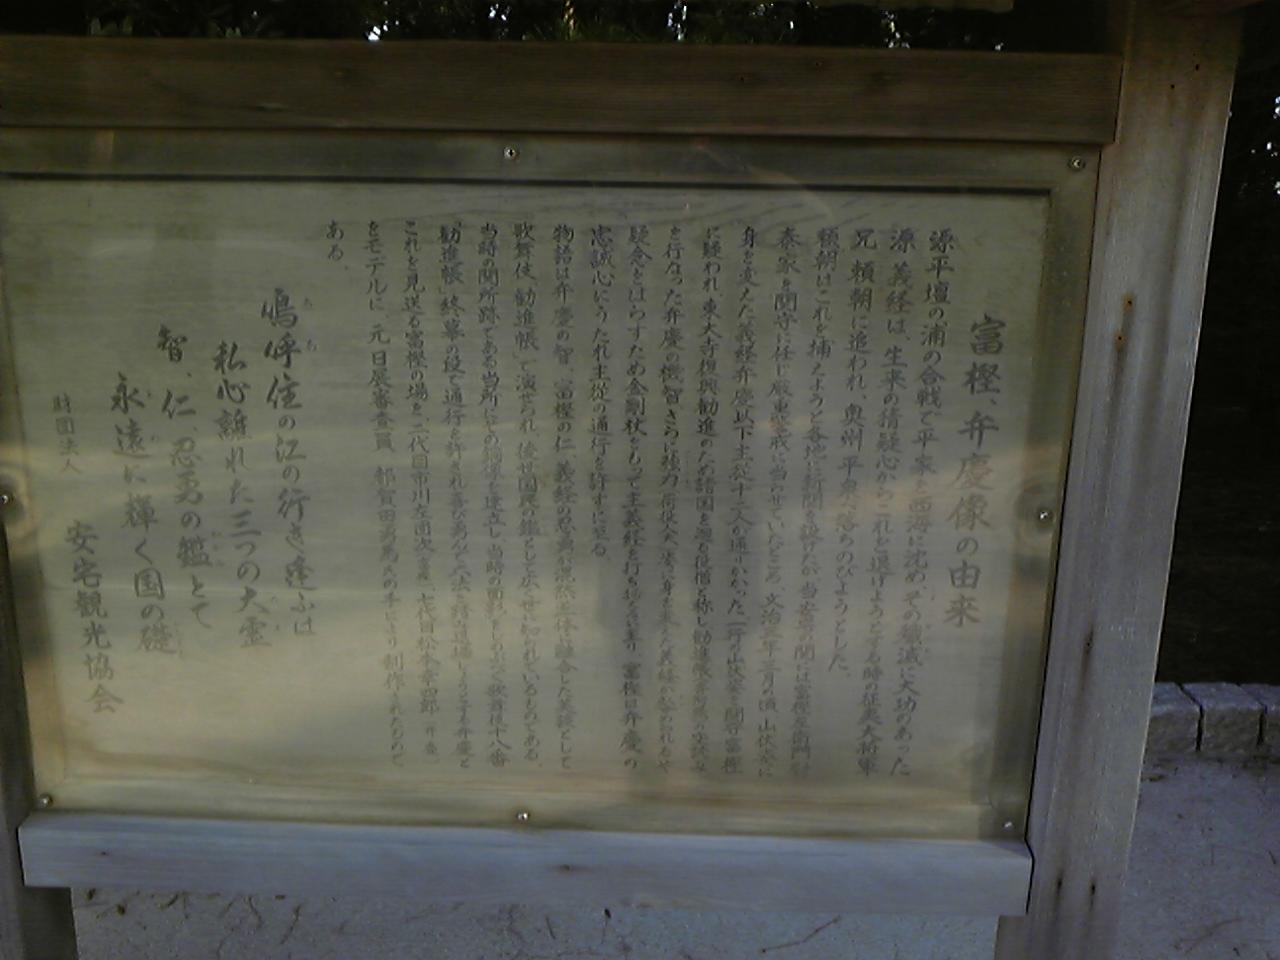 富樫、弁慶像の由来
源平壇の浦の合戦で平家を西海に沈め、その殲滅に大功のあった
源義経は、生来の猜疑心からこれを退けようとする時の征夷大将軍
兄頼朝に追われ、奥州平泉へ落ちのびようとした。
頼朝はこれを捕えようと各地に新関を設けたが、当安宅の関には富樫左衛門
泰家を関守に任じ厳重警戒に当らせていたところ、文治三年三月の頃、山伏姿に
身を変えた義経弁慶以下主従十二人が通りかかった。一行の山伏姿を関守富樫
に疑われ、東大寺復興勧進のため諸国を廻る役僧と称し勧進帳
を行なった弁慶の機智さらに強力
疑念をはらすため金剛杖をもって主義経を打ち 富樫は弁慶の
忠誠心にうたれ主従の通行を許すに至る。
物語は弁慶の智、富樫の仁、義経の忍勇が渾然一体に融合した美談として
歌舞伎「勧進帳」で演ぜられ、後世国民の鑑として広く世に知られているものである。
当時の関所跡である当所にこの銅像を建立し、当時の面影をしのぶべく歌舞伎十八番
「勧進帳」終幕の段で通行を許され喜び勇んで六法を踏み退場しようとする弁慶と
これを見送る富樫の場を、二代目市川左団次 富樫、七代目松本幸四郎 弁慶、
をモデルに、元日展審査員 都賀田勇馬氏の手により制作されたもので
ある。
嗚呼住の江の行き逢ふは
私心離れた三つの大霊
智、仁、忍勇の鑑とて
永遠に輝く国の礎
財団法人 安宅観光協会